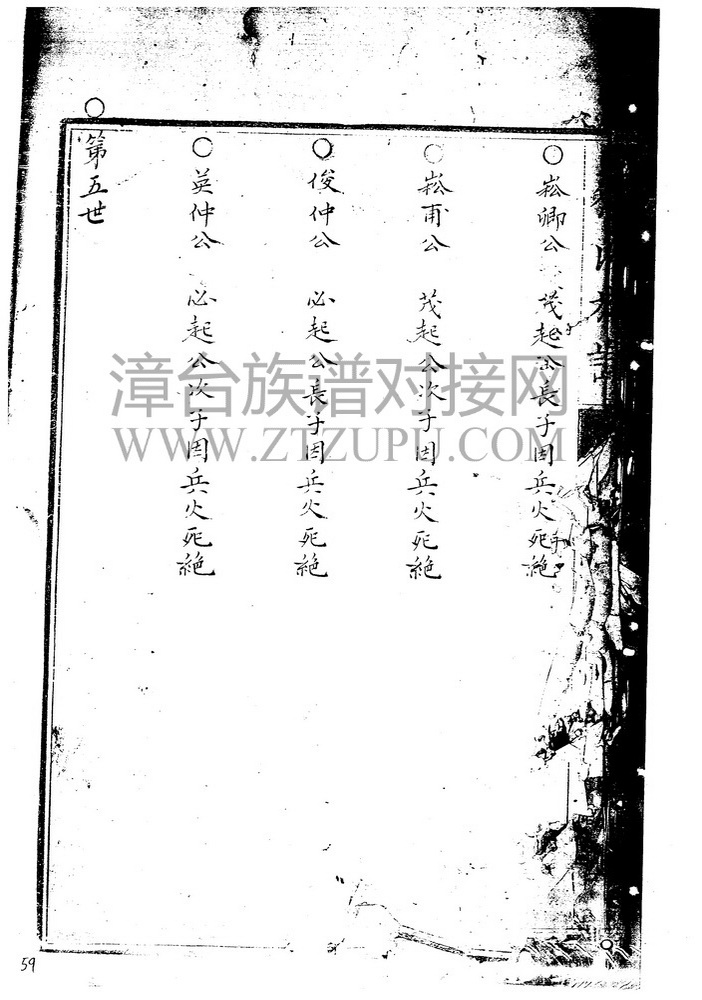 ○崧卿公 茂起公長子因兵火死絶
○崧甫公 茂起公次子因兵火死絶
○俊仲公 必起公長子因兵火死絶
○英仲公 必起公次子因兵火死絶
○第五世
漳台族谱对接网
WWW.ZTZUPU.COM
59